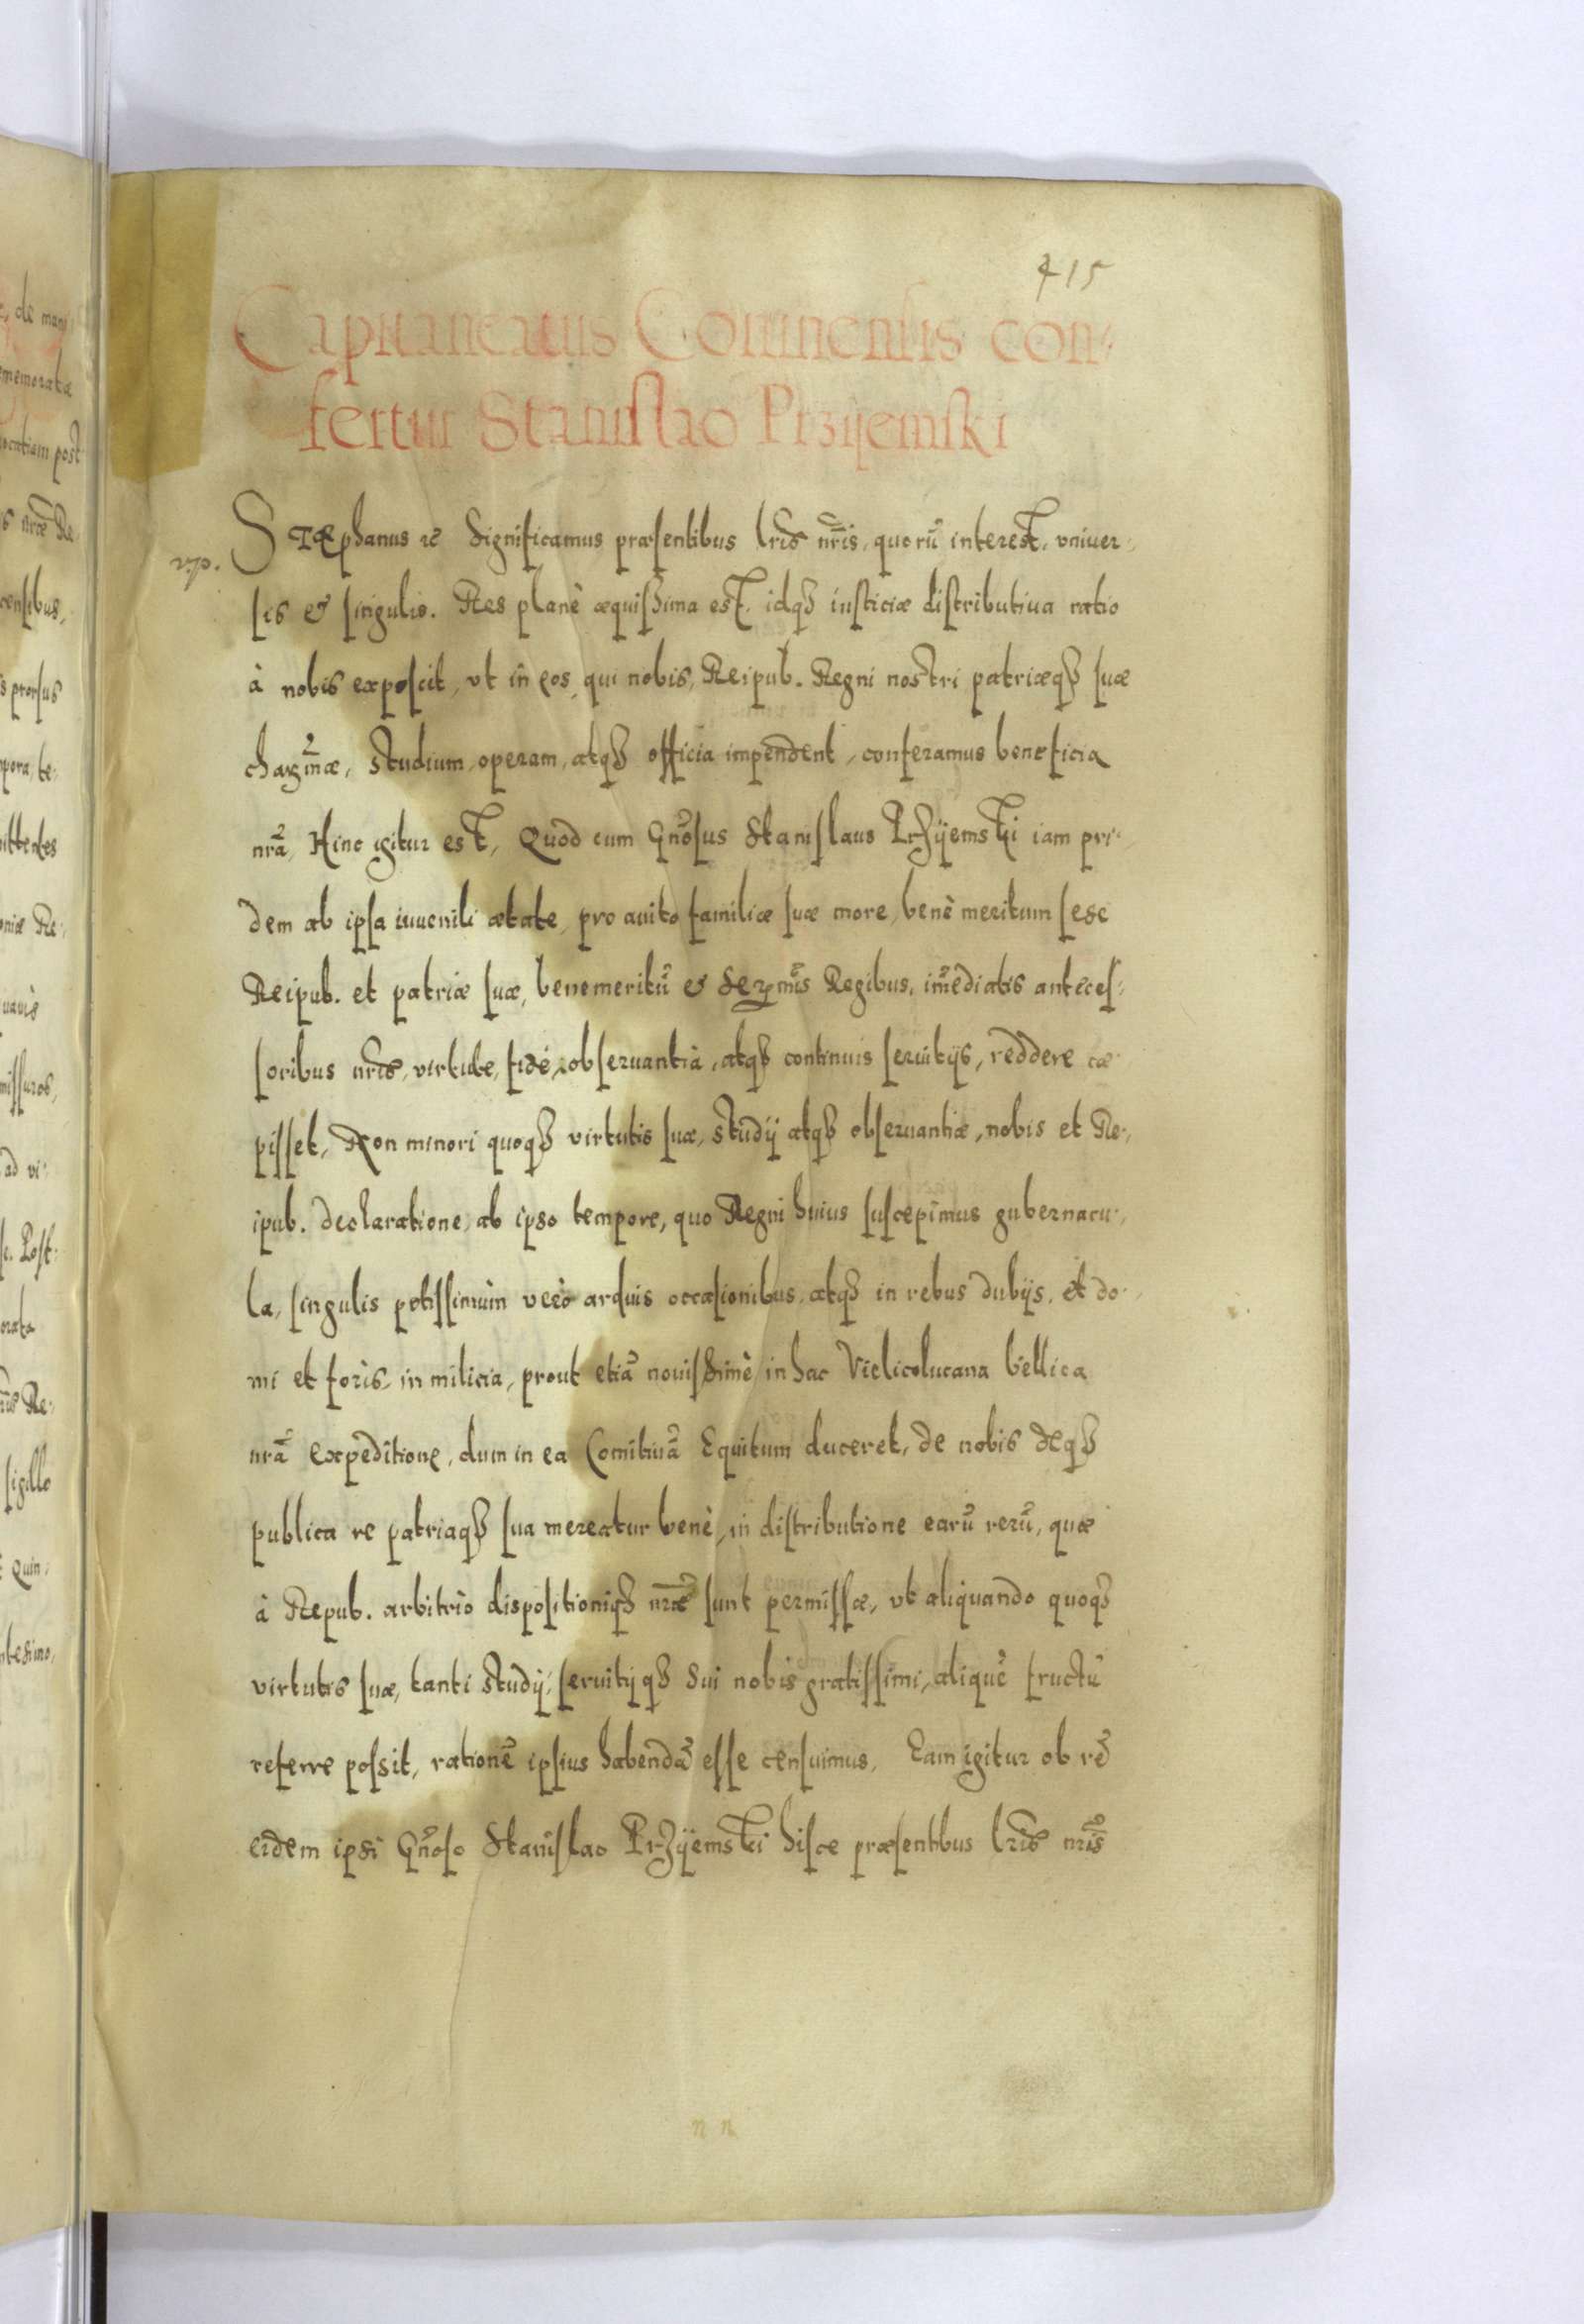 415
Capitaneatus Coninensis con-
fertur Stanislao Przÿemski
v.p.
Stephanus etc Significamus præsentibus lris nris, quorũ interest, vniuer-
sis et singulis. Res planè æquissima est, idq iusticiæ distributiua ratio
à nobis exposcit, vt in eos, qui nobis, Reipub. Regni nostri patriæq suæ
charismæ, studium, operam, atq officia impendent, conferamus beneficia
nrã, Hinc igitur est, Quod cum Gnosus Stanislaus Przÿemski iam pri-
dem ab ipsa iuuenili ætate, pro auito familiæ suæ more, benè meritum sese
Reipub. et patriæ suæ, benemeritũ et Sermis Regibus, imediatis anteces-
soribus nris, virtute, fide, obseruantia, atq continuis seruitÿs, reddere cæ-
pisset, Non minori quoq virtutis suæ, studÿ atq obseruantiæ, nobis et Re-
ipub. declaratione, ab ipso tempore, quo Regni huius suscepimus gubernacu-
la, singulis potissimùm verò arduis occasionibus, atq in rebus dubÿs, et do-
mi et foris, in milicia, prout etiã nouissimè in hac Vielicolucana bellica
nrã expeditione, dum in ea Comitiuã Equitum duceret, de nobis deq
publica re patriaq sua mereatur benè, in distributione earũ rerũ, quæ
à Repub. arbitrio dispositioniq nræ sunt permissæ, vt aliquando quoq
virtutis suæ, tanti studÿ, seruitÿq sui nobis gratissimi, aliquẽ fructũ
referre possit, rationẽ ipsius habendã esse censuimus, Eam igitur ob rẽ
eidem ipsi Gnoso Stanislao Przÿemski hisce præsentibus lris nris
n n